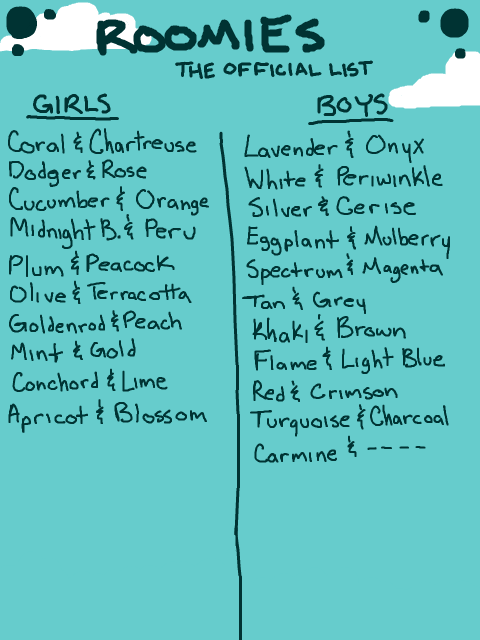 ROOMIES
THE OFFICIAL LIST
GIRLS
Coral & Chartreuse
Dodger & Rose
Cucumber & Orange
Midnight B. & Peru
Plum & Peacock
Olive & Terracotta
Goldenrod & Peach
Mint & Gold
Conchord & Lime
Apricot & Blossom
BOYS
Lavender & Onyx
White & Periwinkle
Silver & Cerise
Eggplant & Mulberry
Spectrum & Magenta
Tan & Grey
Khaki & Brown
Flame & Light Blue
Red & Crimson
Turquoise & Charcoal
Carmine & ----